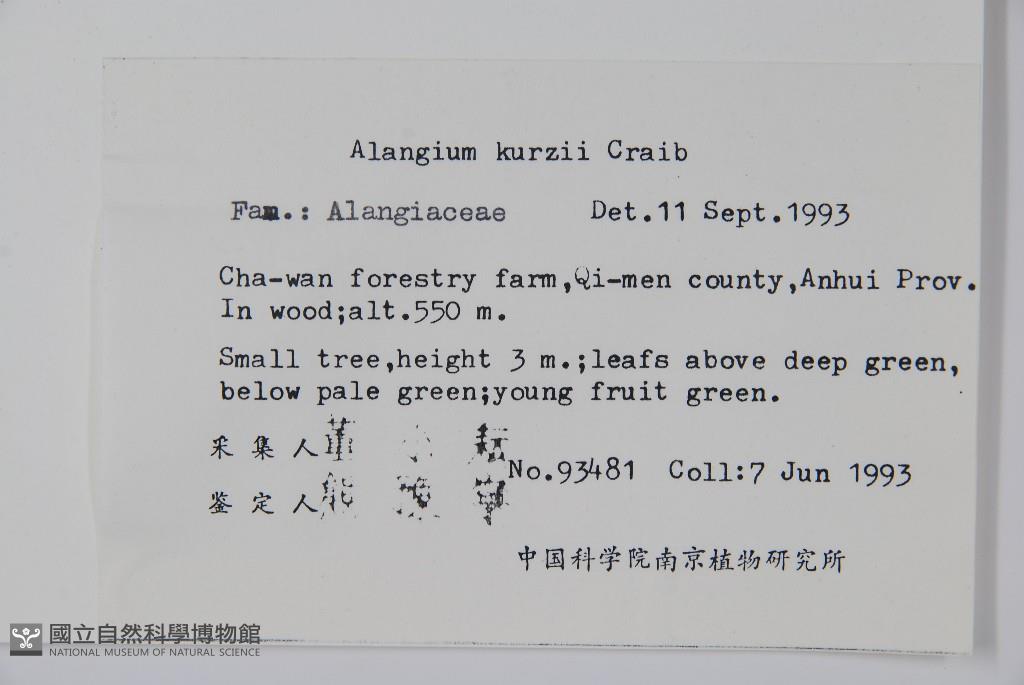 Alangium kurzii Craib
Fam.: Alangiaceae Det.11 Sept.1993
Cha-wan forestry farm,Qi-men county,Anhui Prov.
In wood;alt.550 m.
Small tree,height 3 m.;leafs above deep green,
below pale green;young fruit green.
采集人
No.93481 Coll:7 Jun 1993
鉴定人
中国科学院南京植物研究所
國立自然科學博物館
NATIONAL MUSEUM OF NATURAL SCIENCE